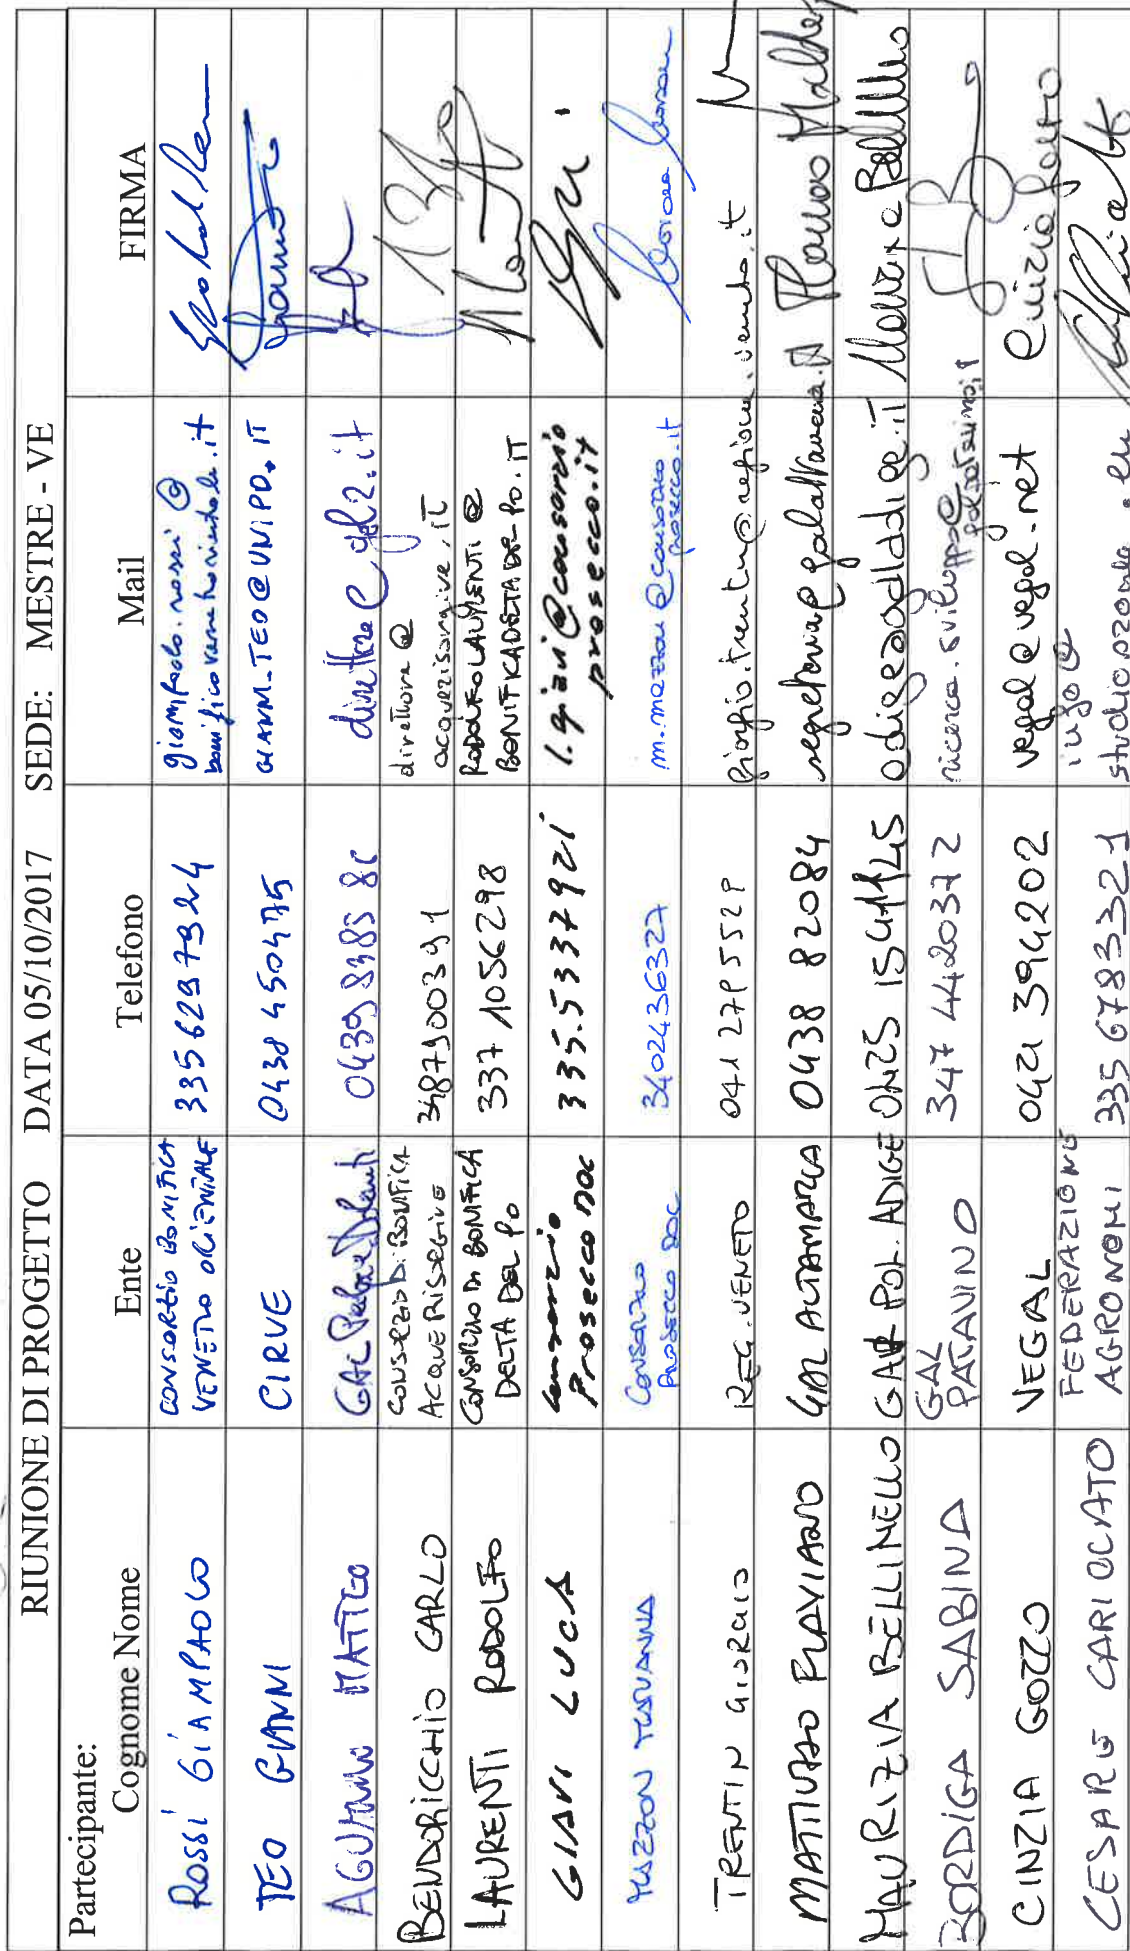 RIUNIONE DI PROGETTO DATA 05/10/2017 SEDE: MESTRE - VE
Partecipante:
Cognome Nome Ente Telefono Mail FIRMA
ROSSI GIAMPAOLO CONSORZIO BONIFICA VENETO ORIENTALE 3356297324 giampaolo.rossi@
bonificavenetorientale.it
TEO GIANNI CIRVE 0438 450475 GIANNI.TEO@UNIPD.IT
MATTEO GAL direttore@gal2.it
BENDORICCHIO CARLO CONSORZIO DI BONIFICA ACQUE RISORGIVE 3487900391 direttore@
acquerisorgive.it
LAURENTI RODOLFO CONSORZIO DI BONIFICA DELTA DEL PO 337 1056298 RODOLFO.LAURENTI@
BONIFICADELTADELPO.IT
GIAVI LUCA Consorzio Prosecco DOC 335.5337921 l.giavi@consorzio
prosecco.it
MAZZON CONSORZIO PROSECCO DOC 3402436327 m.mazzon@consorzio
prosecco.it
TRENTIN GIORGIO REG. VENETO 041 2795529 giorgio.trentin@regione.veneto.it
MATTIUZZO FLAVIANO GAL ALTAMARCA 0438 82084 segreteria@galaltamarca.it
MAURIZIA BELLINELLO GAL POL. ADIGE adige@galadige.it Maurizia Bellinello
BORDIGA SABINA GAL PATAVINO 347 4420372 ricerca.sviluppo@
galpatavino.it
CINZIA GOZZO VEGAL 0421 394202 vegal@vegal.net Cinzia Gozzo
CESARE CARIOLATO FEDERAZIONE AGRONOMI 335 6783321 info@